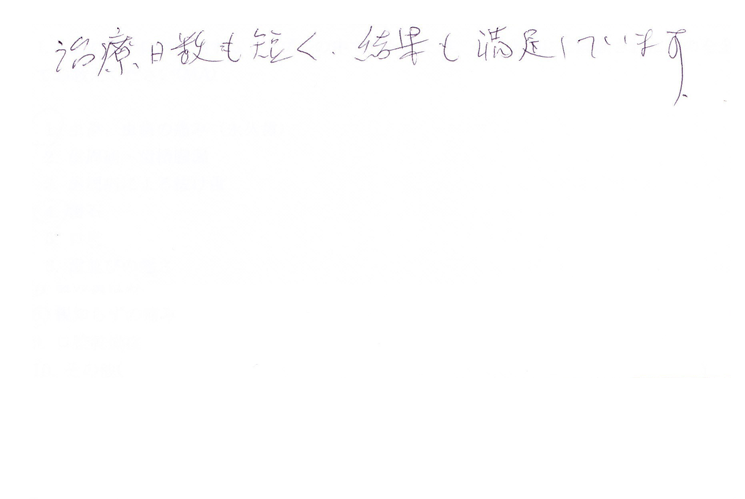 治療日数も短く、結果も満足しています